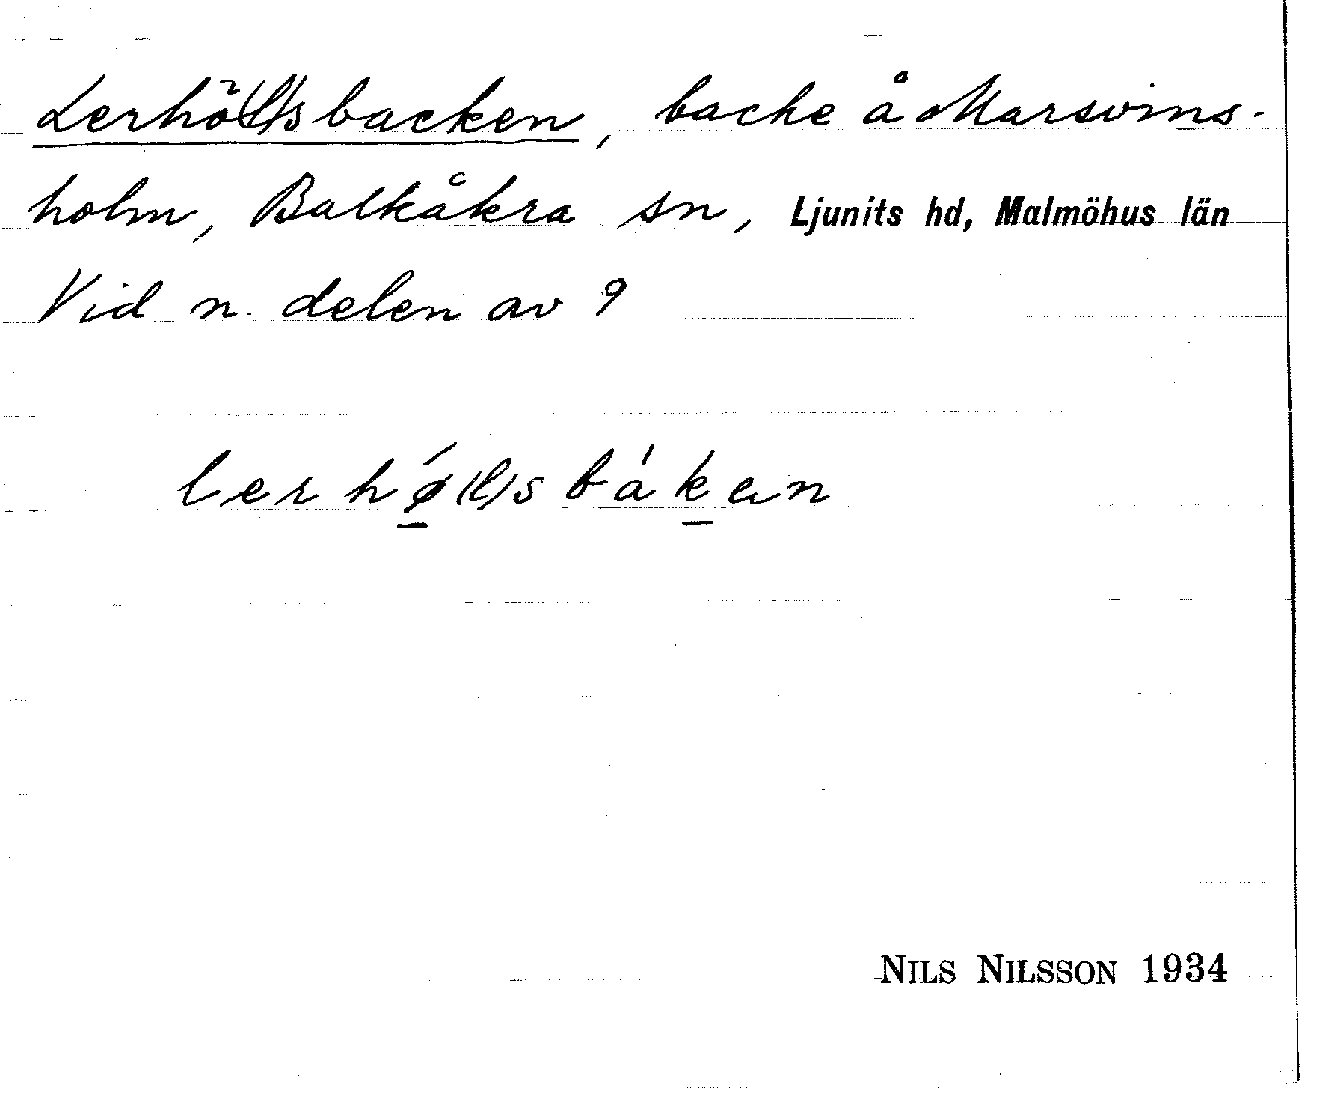 Lerhö(l)sbacken, backe å Marsvins-
holm, Balkåkra sn, Ljunits hd, Malmöhus län
Vid n. delen av 9
lerhǿ(l)sbákan
NILS NILSSON 1934